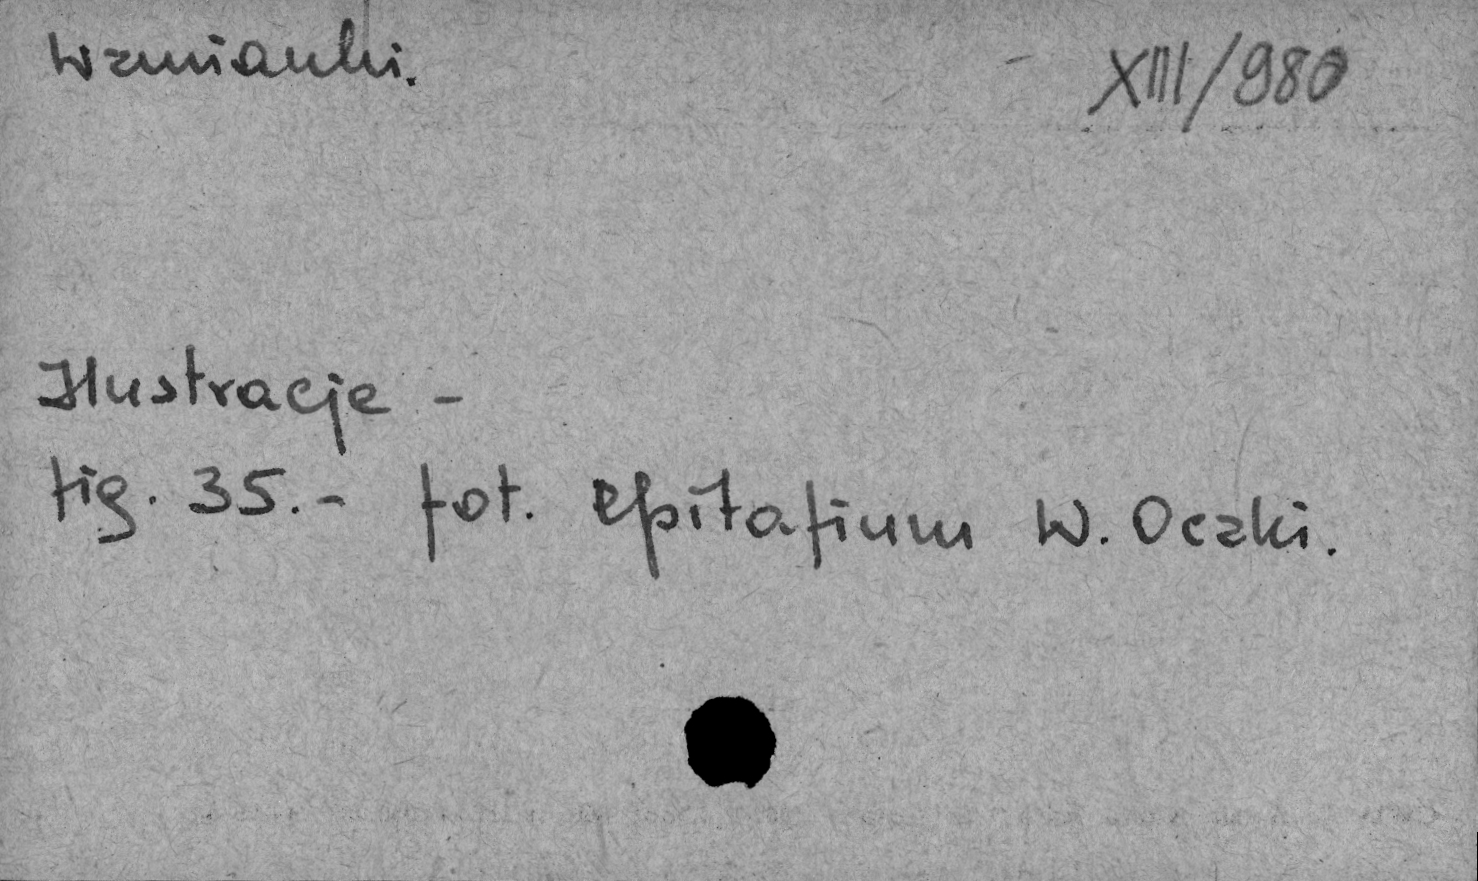 Wzmianki.
XIII/980
Ilustracje -
fig. 35. - fot. epitafium W. Oczki.